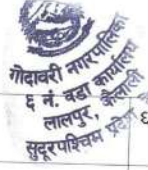 गोदावरी नगरपालिका
६ नं. वडा कार्यालय
लालपुर, कैलाली
सुदूरपश्चिम प्रदेश
६